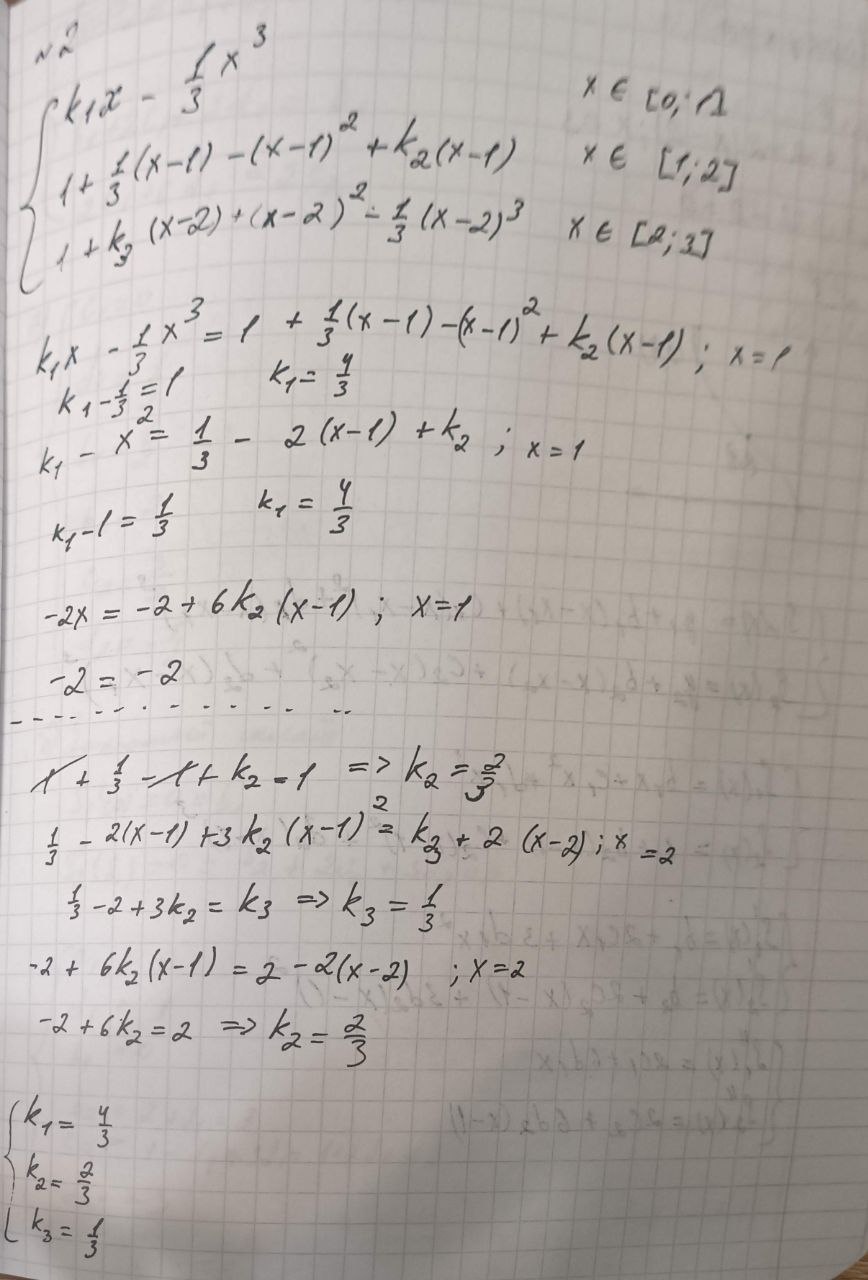 №2
k₁x - 1/3 x³ x ∈ [0; 1]
1 + 1/3(x-1) - (x-1)² + k₂(x-1) x ∈ [1; 2]
1 + k₃(x-2) + (x-2)² - 1/3(x-2)³ x ∈ [2; 3]
k₁x - 1/3 x³ = 1 + 1/3(x-1) - (x-1)² + k₂(x-1); x=1
k₁ - 1/3 = 1 k₁ = 4/3
k₁ - x² = 1/3 - 2(x-1) + k₂; x=1
k₁ - 1 = 1/3 k₁ = 4/3
-2x = -2 + 6k₂(x-1); x=1
-2 = -2
1 + 1/3 - 1 + k₂ = 1 => k₂ = 2/3
1/3 - 2(x-1) + 3k₂(x-1)² = k₃ + 2(x-2); x=2
1/3 - 2 + 3k₂ = k₃ => k₃ = 1/3
-2 + 6k₂(x-1) = 2 - 2(x-2); x=2
-2 + 6k₂ = 2 => k₂ = 2/3
k₁ = 4/3
k₂ = 2/3
k₃ = 1/3